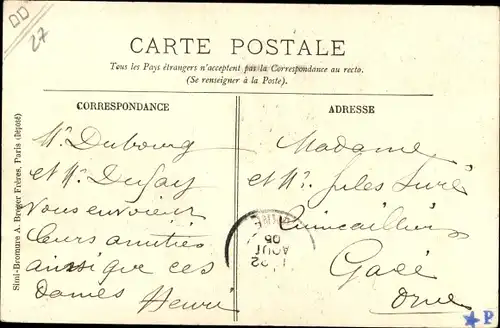 27
CARTE POSTALE
Tous les Pays étrangers n'acceptent pas la Correspondance au recto.
(Se renseigner à la Poste).
CORRESPONDANCE
Mr Dubourg
et Mr Dufay
vous envoient
leurs amitiés
ainsi que ces
Dames Henri
ADRESSE
Madame
et Mr Jules
Quincaillier
Gacé
Orne
AOUT
05
Simi-Bromure A. Breger Frères, Paris (déposé)
P